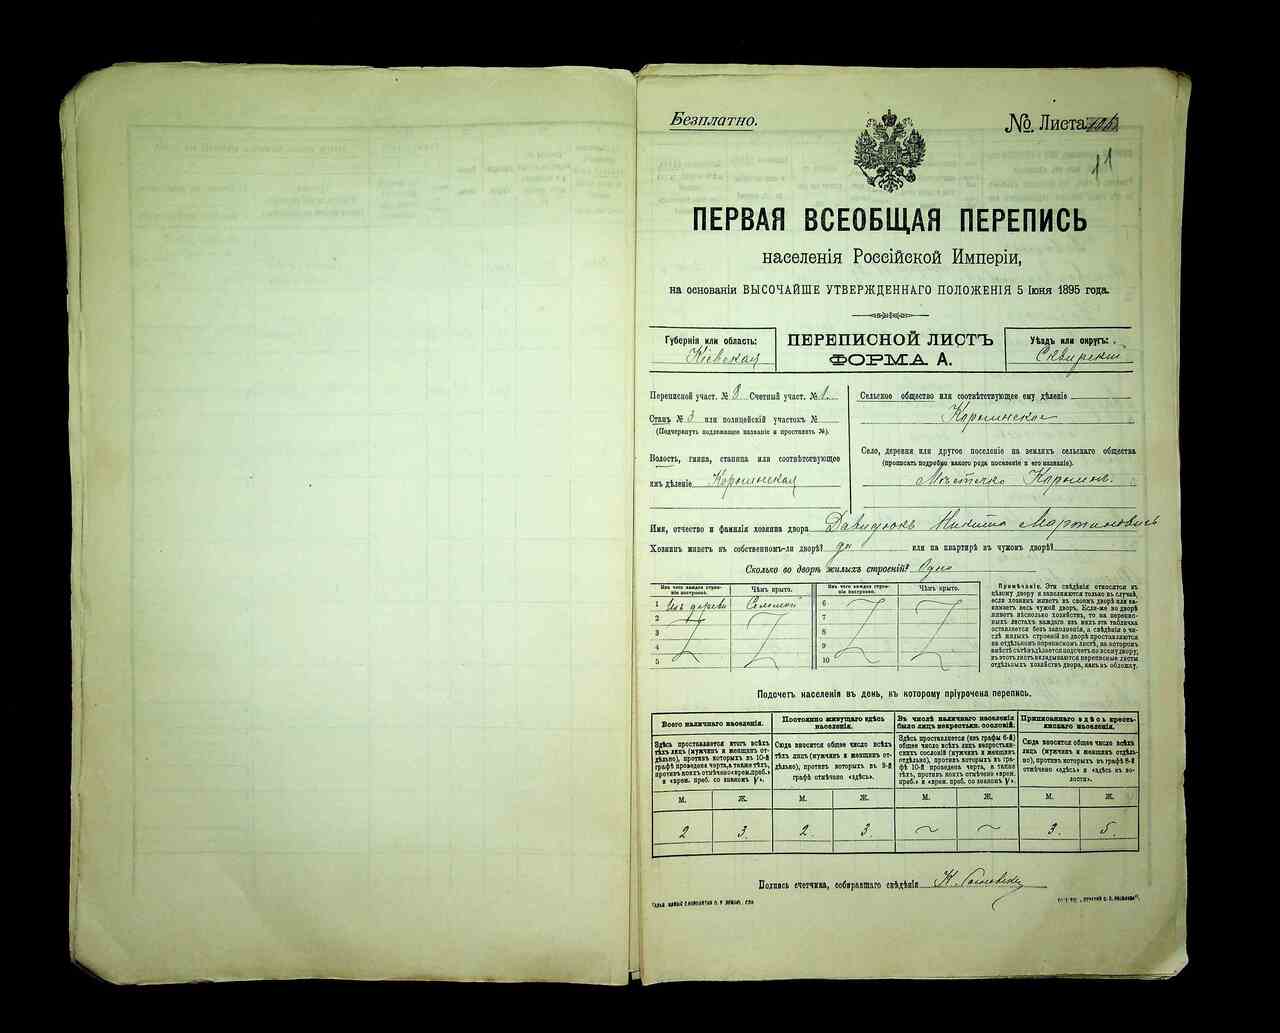 Безплатно.
№ Листа
11
ПЕРВАЯ ВСЕОБЩАЯ ПЕРЕПИСЬ
населенія Россійской Имперіи,
на основаніи ВЫСОЧАЙШЕ УТВЕРЖДЕННАГО ПОЛОЖЕНІЯ 5 Іюня 1895 года.
Губернія или область:
Кіевская
ПЕРЕПИСНОЙ ЛИСТЪ
ФОРМА А.
Уѣздъ или округъ:
Сквирскій
Переписной участ. № 8 Счетный участ. № 1.
Станъ № 3 или полицейскій участокъ №
(Подчеркнуть подлежащее названіе и проставить №).
Волость, гмина, станица или соотвѣтствующее
имъ дѣленіе
Сельское общество или соотвѣтствующее ему дѣленіе
Село, деревня или другое поселеніе на земляхъ сельскаго общества
(прописать подробно какого рода поселеніе и его названіе).
Мѣстечко
Имя, отчество и фамилія хозяина двора Давидюкъ Никита Мартиновичъ
Хозяинъ живетъ въ собственномъ-ли дворѣ? да или на квартирѣ въ чужомъ дворѣ?
Сколько во дворѣ жилыхъ строеній? Одно
Изъ чего каждое строеніе построено. Чѣмъ крыто. Изъ чего каждое строеніе построено. Чѣмъ крыто.
1 Изъ дерева Соломой 6
2 7
3 8
4 9
5 10
Примѣчаніе. Эти свѣдѣнія относятся къ
цѣлому двору и заполняются только въ случаѣ,
если хозяинъ живетъ въ своемъ дворѣ или занимаетъ
весь чужой дворъ. Если-же во дворѣ
живетъ нѣсколько хозяйствъ, то на переписныхъ
листахъ каждаго изъ нихъ эта табличка
оставляется безъ заполненія, а свѣдѣнія о числѣ
жилыхъ строеній во дворѣ проставляются
на отдѣльномъ переписномъ листѣ, на которомъ
вмѣстѣ съ тѣмъ дѣлается подсчетъ по всему двору;
въ этотъ листъ вкладываются переписные листы
отдѣльныхъ хозяйствъ двора, какъ въ обложку.
Подсчетъ населенія въ день, къ которому пріурочена перепись.
Всего наличнаго населенія.
Здѣсь проставляется итогъ всѣхъ
тѣхъ лицъ (мужчинъ и женщинъ отдѣльно),
противъ которыхъ въ 10-й
графѣ проведена черта, а также тѣхъ,
противъ коихъ отмѣчено «врем. преб.»
и «врем. преб. со знакомъ V».
Постоянно живущаго здѣсь населенія.
Сюда вносится общее число всѣхъ
тѣхъ лицъ (мужчинъ и женщинъ отдѣльно),
противъ которыхъ въ 9-й
графѣ отмѣчено «здѣсь».
Въ числѣ наличнаго населенія было лицъ некрестьян. сословій.
Здѣсь проставляется (изъ графы 6-й)
общее число всѣхъ лицъ некрестьянскихъ
сословій (мужчинъ и женщинъ
отдѣльно), противъ которыхъ въ графѣ
10-й проведена черта, а также
тѣхъ, противъ коихъ отмѣчено «врем.
преб.» и «врем. преб. со знакомъ V».
Приписаннаго здѣсь крестьянскаго населенія.
Сюда вносится общее число всѣхъ
лицъ (мужчинъ и женщинъ отдѣльно),
противъ которыхъ въ графѣ 8-й
отмѣчено «здѣсь» и «здѣсь въ волости».
М. Ж. М. Ж. М. Ж. М. Ж.
2 3. 2. 3. ~ ~ 3. 5.
Подпись счетчика, собиравшаго свѣдѣнія